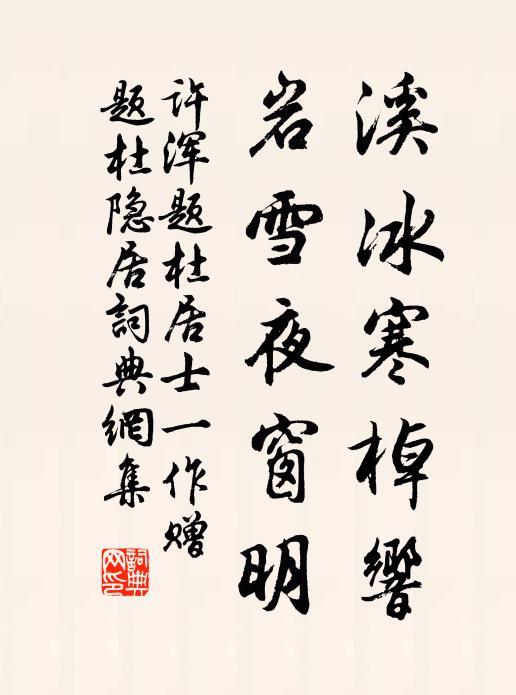 溪冰寒棹響
岩雪夜窗明
许浑题杜居士一作赠
题杜隐居詞典網集
詞典网印